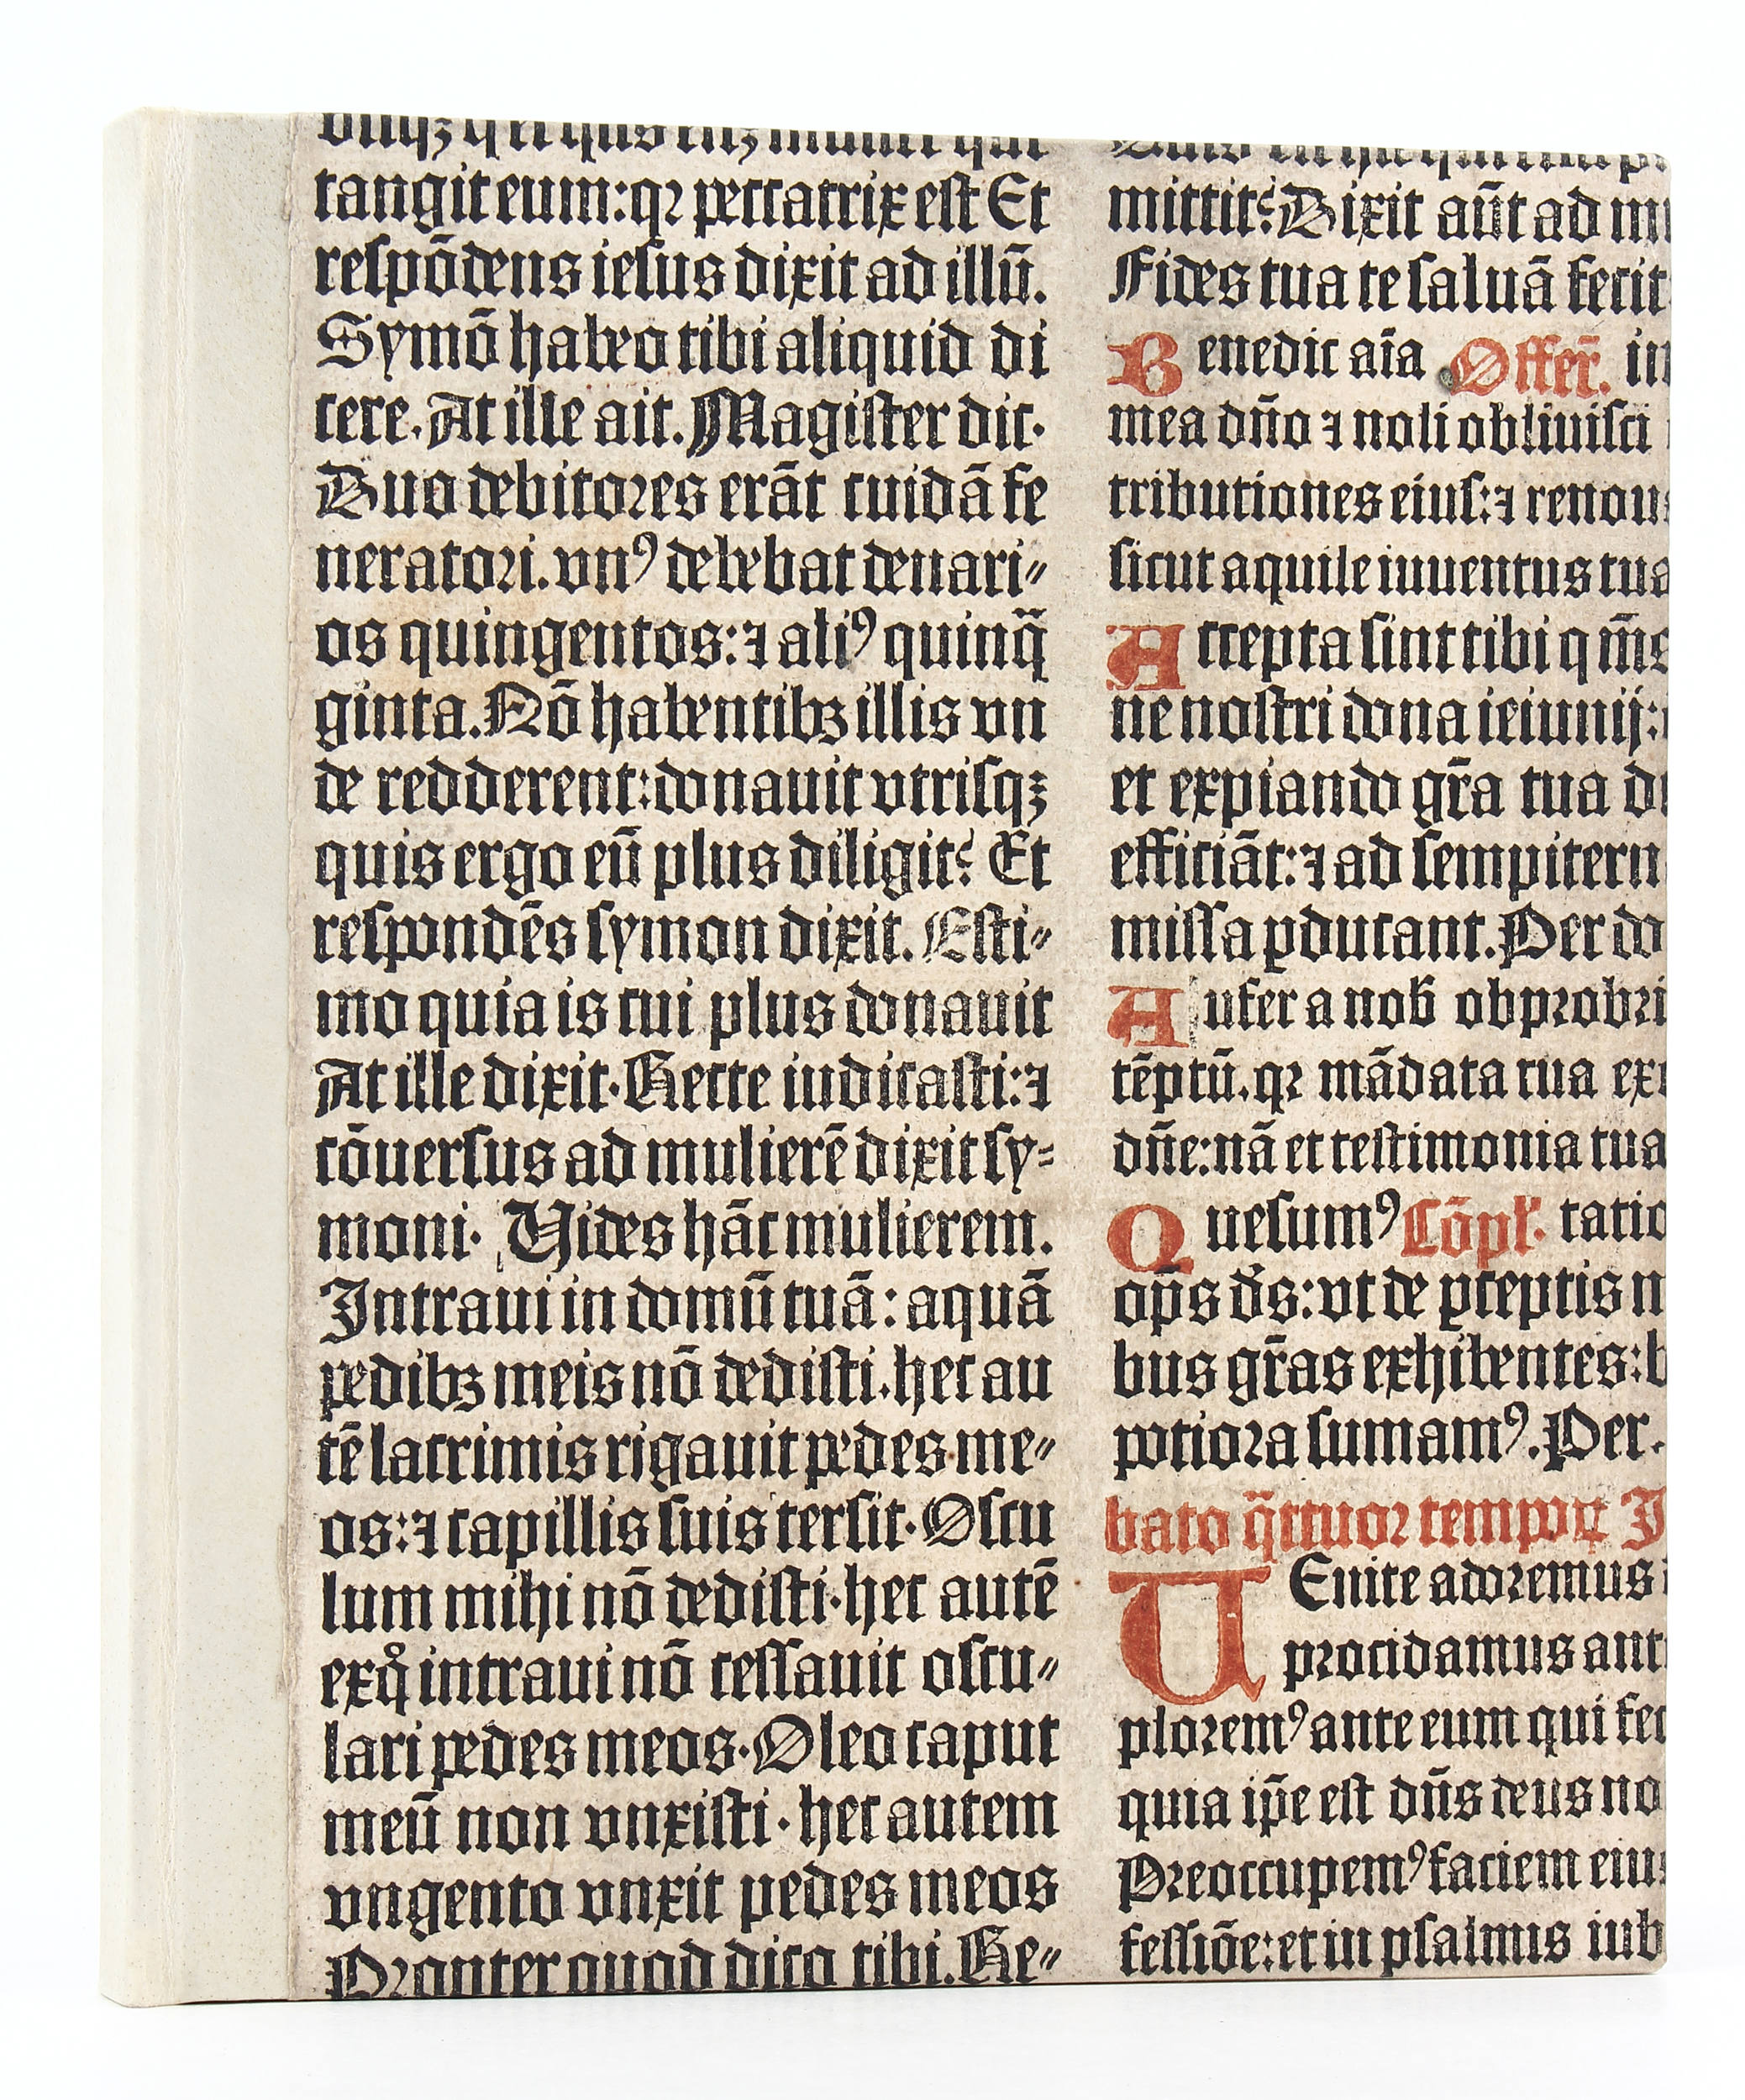 tangit eum: qꝛ peccatrix est Et
respōdens iesus dixit ad illū.
Symō habeo tibi aliquid di
cere. At ille ait. Magister dic.
Duo debitoꝛes erāt cuidā fe
neratoꝛi. vnꝰ debebat denari⸗
os quingentos: ⁊ aliꝰ quinq̄
ginta. Nō habentibꝫ illis vn
de redderent: donauit vtrisqꝫ
quis ergo eū plus diligit? Et
respondēs symon dixit. Esti⸗
mo quia is cui plus donauit
At ille dixit. Recte iudicasti: ⁊
cōuersus ad mulierē dixit sy⸗
moni. Uides hāc mulierem.
Intraui in domū tuā: aquā
pedibꝫ meis nō dedisti. hec au
tē lacrimis rigauit pedes me⸗
os: ⁊ capillis suis tersit. Oscu
lum mihi nō dedisti. hec autē
ex qͦ intraui nō cessauit oscu⸗
lari pedes meos. Oleo caput
meū non vnxisti. hec autem
vngento vnxit pedes meos
Pꝛopter quod dico tibi. Re⸗
mittit? Dixit aūt ad
Fides tua te saluā fecit:
Benedic aīa Offer̄. in
mea dn̄o ⁊ noli obliuisci
tributiones eius: ⁊ renou
sicut aquile iuuentus tua
Accepta sint tibi q̄ m̄s
ne nostri dona ieiunij:
et expiando gr̄a tua
efficiāt: ⁊ ad sempitern
missa ꝑducant. Per do
Aufer a nob̄ obpꝛobꝛi
tēptū. qꝛ mādata tua ex
dn̄e: nā et testimonia tua
Quesumꝰ Cōpl̄. tatio
op̄s d̄s: vt de ꝑceptis n
bus gr̄as exhibentes: b
potioꝛa sumamꝰ. Per.
bato q̄ttuoꝛ tempoꝝ I
UEnite adoꝛemus
pꝛocidamus ant
ploꝛemꝰ ante eum qui fec
quia ip̄e est dn̄s deus no
Pꝛeoccupemꝰ faciem eius
fessiōe: et in psalmis iub